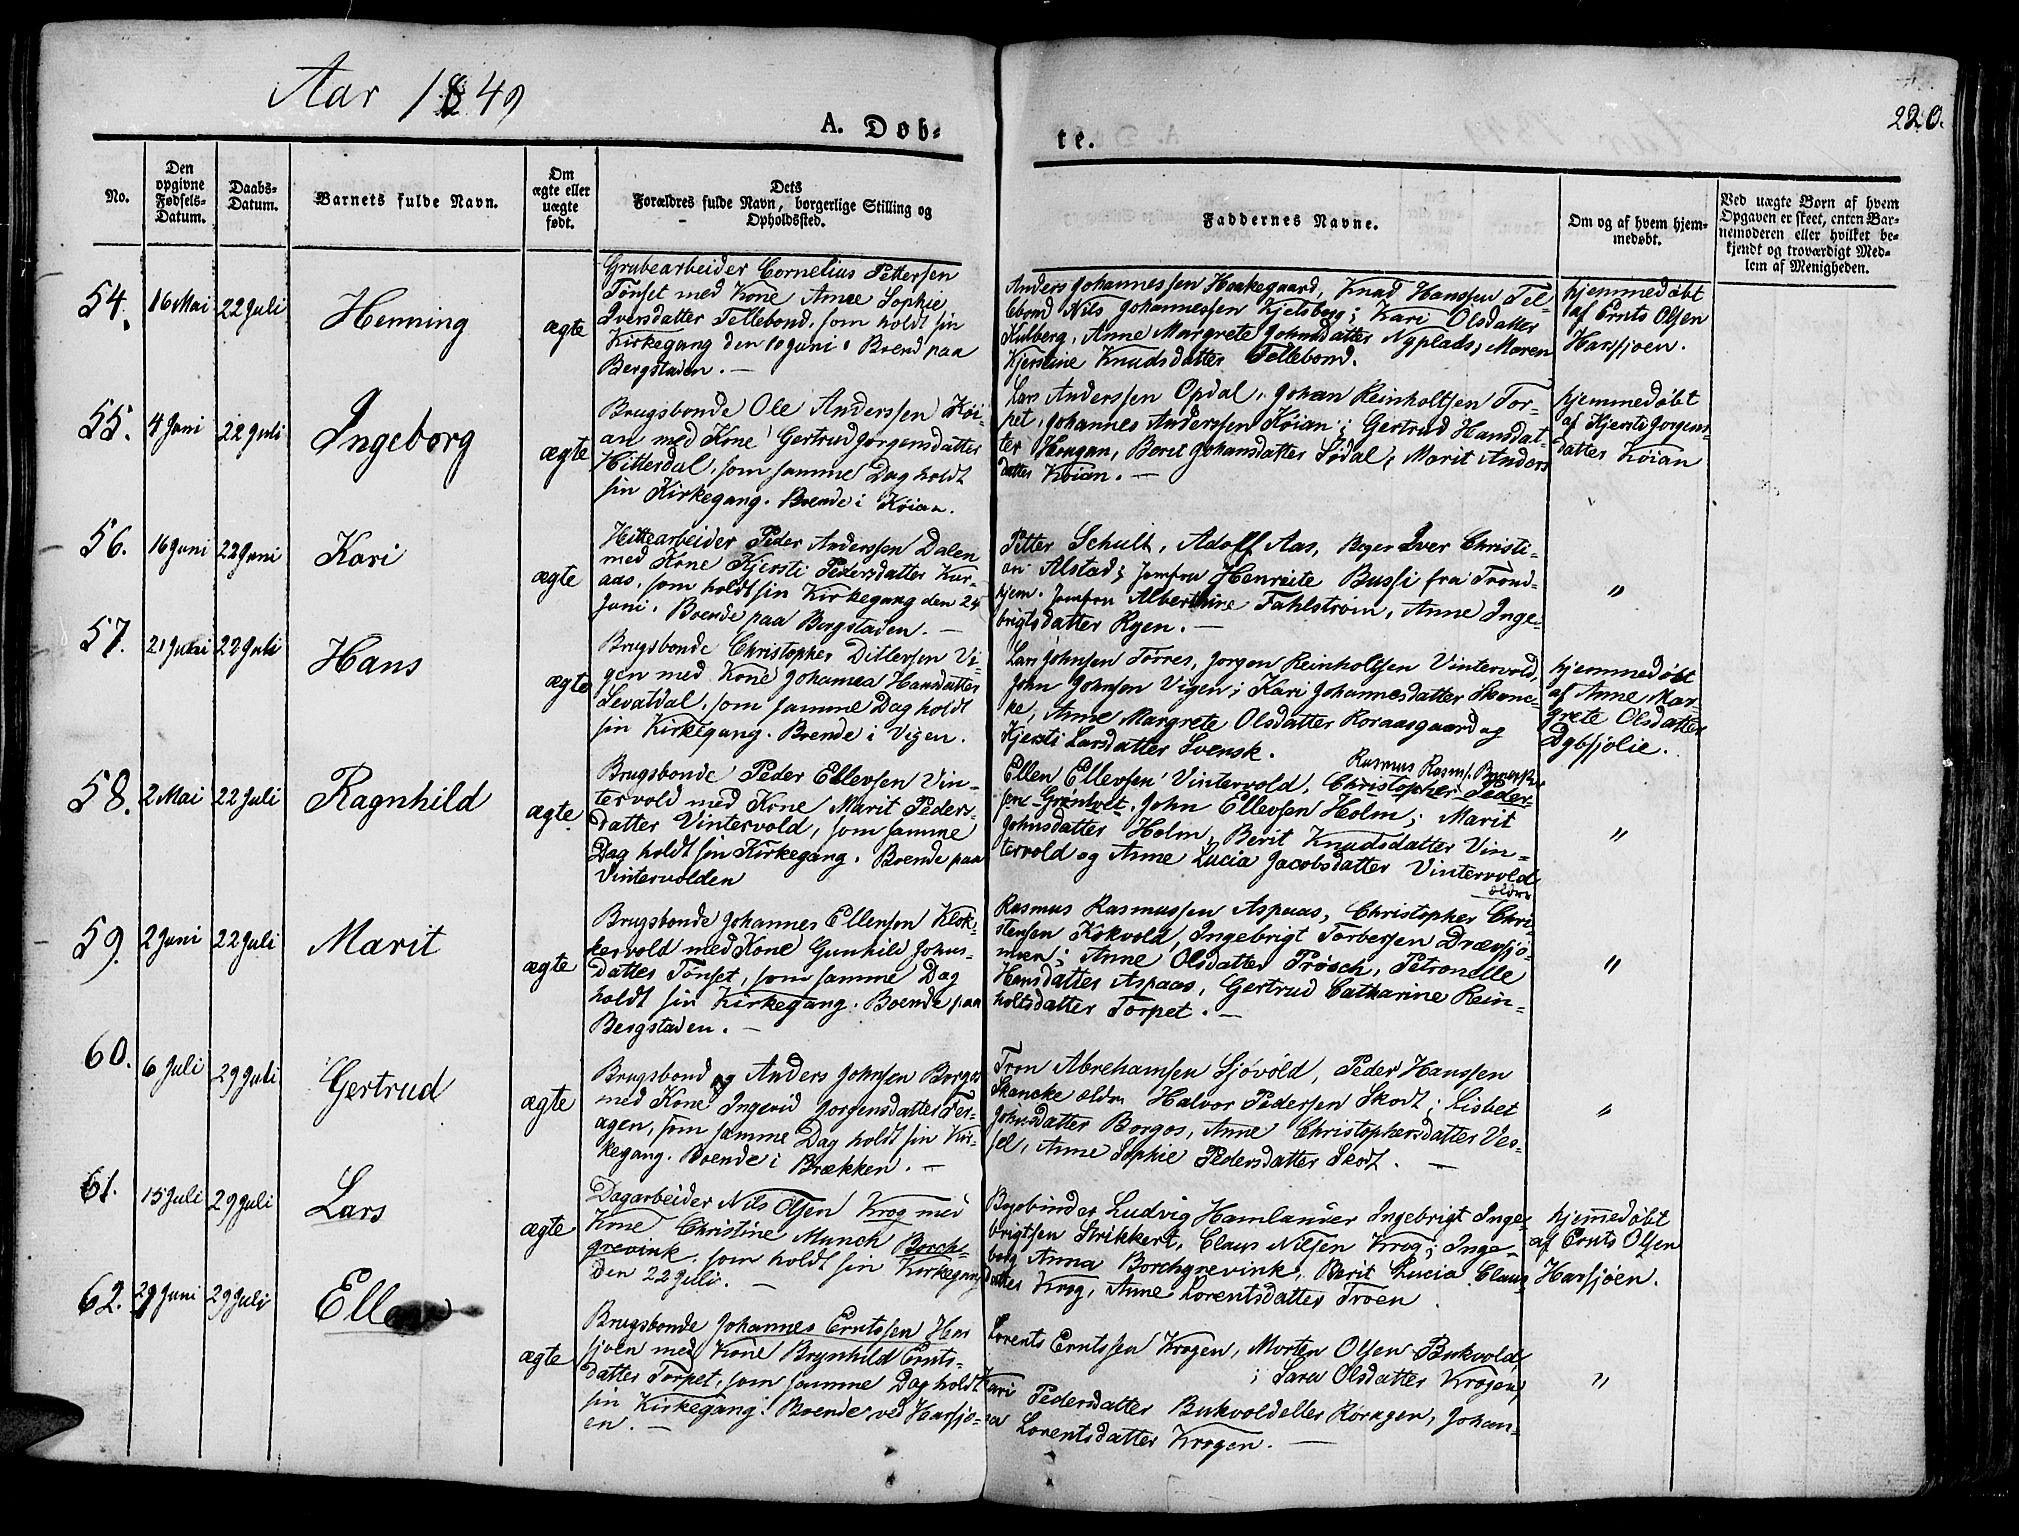 Aar 1849
220.
A. Døb-
te.
No.
Den
opgivne
Fødsels-
Datum.
Daabs-
Datum.
Barnets fulde Navn.
Om
ægte eller
uægte
født.
Dets
Forældres fulde Navn, borgerlige Stilling og
Opholdssted.
Faddernes Navne.
Om og af hvem hjem-
medøbt.
Ved uægte Børn af hvem
Opgaven er skeet, enten Bar-
nemoderen eller hvilket be-
kjendt og troværdigt Med-
lem af Menigheden.
54.
16 Mai
22 Juli
Henning
ægte
Grubearbeider Cornelius Pettersen
Tønset med Kone Anne Sophie
Iversdatter Tellebond, som holdt sin
Kirkegang den 10 Juni. Boend paa
Bergstaden. —
Anders Johannessen Haakegaard, Knud Hanssen Tel-
lebond, Nils Johannessen Kjelsberg; Kari Olsdatter
Kulberg, Anne Margrete Johnsdatter Nyplads, Maren
Kjerstine Knudsdatter Tellebond.
hjemmedøbt
af Ernts Olsen
Harsjøen.
55.
4 Juni
22 Juli
Ingeborg
ægte
Brugsbonde Ole Anderssen Køi-
an med Kone Gertrud Jorgensdatter
Hitterdal, som samme Dag holdt
sin Kirkegang. Boende i Køian.
Lars Anderssen Opdal, Johan Reinholtsen Tor-
pet, Johannes Anderssen Køian; Gertrud Hansdat-
ter Haagan, Berit Johansdatter Sødal, Marit Anders
datter Køian. —
hjemmedøbt
af Kjersti Jorgens-
datter Køian
56.
16 Juni
22 Juni
Kari
ægte
Hittearbeider Peder Anderssen Dalen
med Kone Kjersti Pedersdatter Kur-
aas, som holdt sin Kirkegang den 24
Juni. Boende paa Bergstaden. —
Petter Schult, Adolf Aas, Beger Iver Christi-
an Alstad; Jomfru Henriete Bussi fra Trond-
hjem. Jomfru Alberthine Fahlstrøm, Anne Inge-
brigtsdatter Ryen. —
"
57.
21 Juni
22 Juli
Hans
ægte
Brugsbonde Christopher Ditlevsen Vi-
gen med Kone Johanna Hansdatter
Levaldal, som samme Dag holdt
sin Kirkegang. Boende i Vigen.
Lars Johnsen Torres, Jorgen Reinholtsen Vintervold,
John Johnsen Vigen; Kari Johannesdatter Skanc-
ke, Anne Margrete Olsdatter Roraasgaard og
Kjersti Larsdatter Svensk.
hjemmedøbt
af Anne Mar-
grete Olsdatter
Dybsjølie.
58.
2 Mai
22 Juli
Ragnhild
ægte
Brugsbonde Peder Ellevsen Vin-
tervold med Kone Marit Peders-
datter Vintervold, som samme
Dag holdt sin Kirkegang. Boende paa
Vintervolden
Rasmus Rasms.
Ellen Ellevsen Vintervold, Christopher Peder-
sen Grøntvet, John Ellevsen Holm; Marit
Johnsdatter Holm, Berit Knudsdatter Vin-
tervold og Anne Lucia Jacobsdatter Vintervold
"
59.
2 Juni
22 Juli
Marit
ægte
Brugsbonde Johannes Ellensøn Klok-
kervold med Kone Gunhild Johns-
datter Tønset, som samme Dag
holdt sin Kirkegang. Boende paa
Bergstaden. —
ældre
Rasmus Rasmussen Aspaas, Christopher Chri-
stensen Kokvold, Ingebrigt Torbersen Drævsjø-
moen; Anne Olsdatter Prøsch, Petronelle
Hansdatter Aspaas, Gertrud Catharine Rein-
holtsdatter Torpet. —
"
60.
6 Juli
29 Juli
Gertrud
ægte
Brugsbond og Anders Johnsen Borgos
med Kone Ingevid Jorgensdatter Fer-
agen, som samme Dag holdt sin Kir-
kegang. Boende i Brækken. —
Tron Abrehamsen Sjøvold, Peder Hanssen
Skancke ældr. Halvor Pedersen Skott; Lisbet
Johnsdatter Borgos, Anne Christophersdatter Ves-
sel, Anne Sophie Pedersdatter Skott. —
"
61.
15 Juli
29 Juli
Lars
ægte
Dagarbeider Nils Olsen Krog med
Kone Christine Munch Borch-
grevink, som holdt sin Kirkegang
den 22 Juli. —
Bogbinder Ludvig Hamlander Ingebrigt Inge-
brigtsen Strikkert, Claus Nilsen Krog; Inge-
borg Anna Borchgrevink, Berit Lucia Claus
datter Krog, Anne Lorentsdatter Troen.
hjemmedøbt
af Ernts Olsen
Harsjøen.
62.
29 Juni
29 Juli
Ellen
ægte
Brugsbonde Johannes Erntssen Har
sjøen med Kone Brynhild Ernts-
datter Torpet, som samme Dag holdt
sin Kirkegang. Boende ved Harsjø-
en. —
Lorents Erntssen Krogen, Morten Olsen Bukvold,
; Sara Olsdatter Krogen,
Kari Pedersdatter Bukvold eller Røragen, Johan-
na Lorentsdatter Krogen. —
"